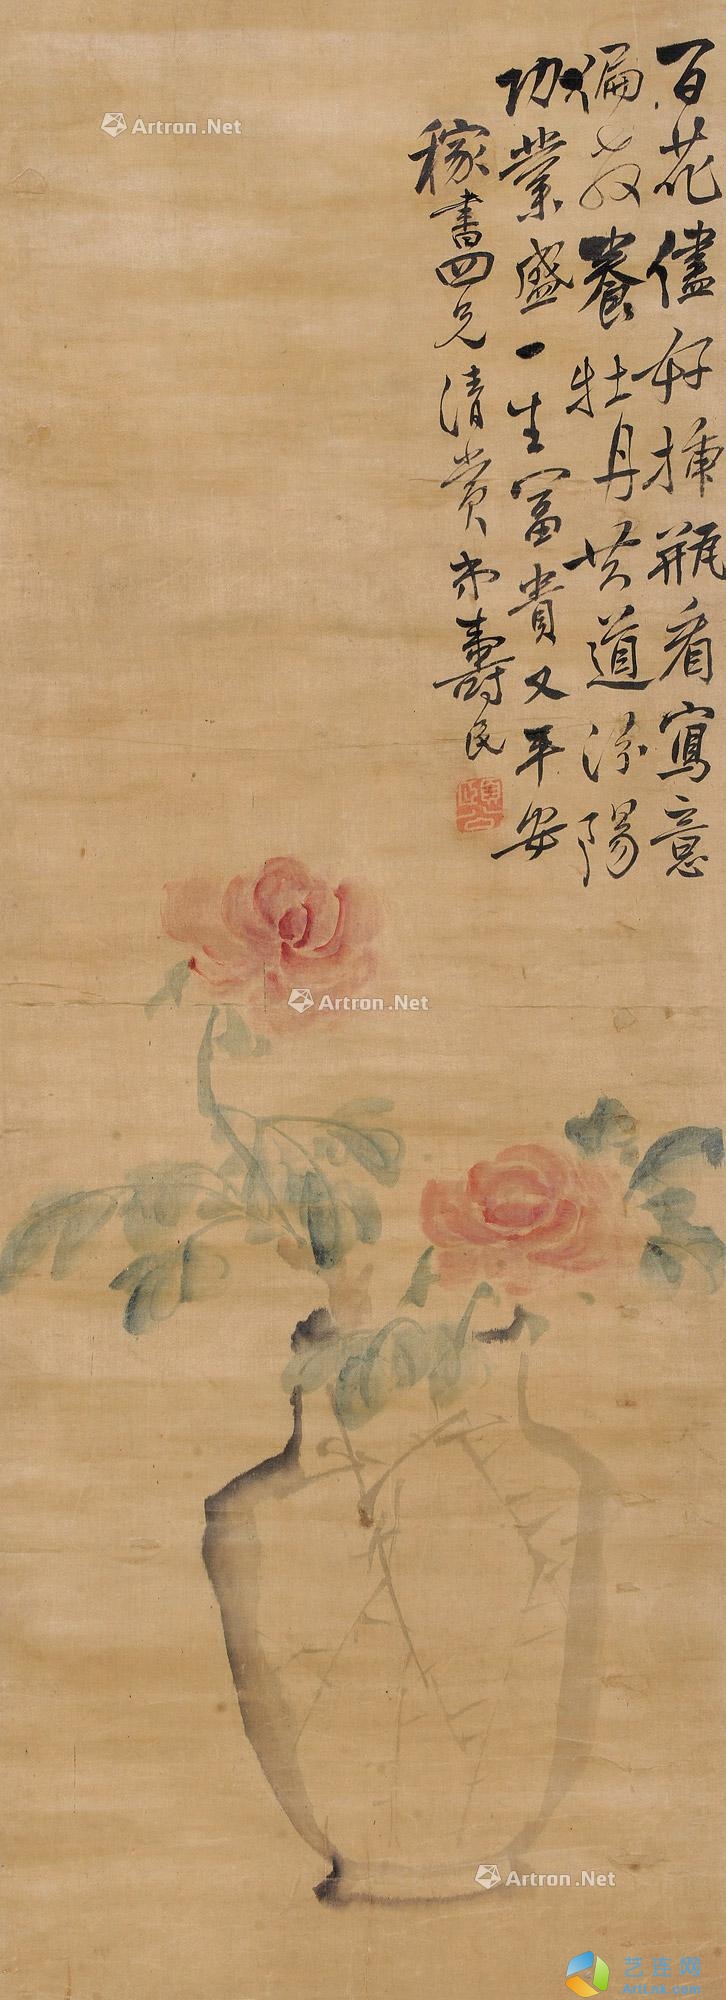 百花儘好插瓶看寫意
偏教養牡丹共道汾陽
功業盛一生富貴又平安
稼書四兄清賞弟壽民
Artron.Net
Artron.Net
Artron.Net
艺连网
ArtLnk.com